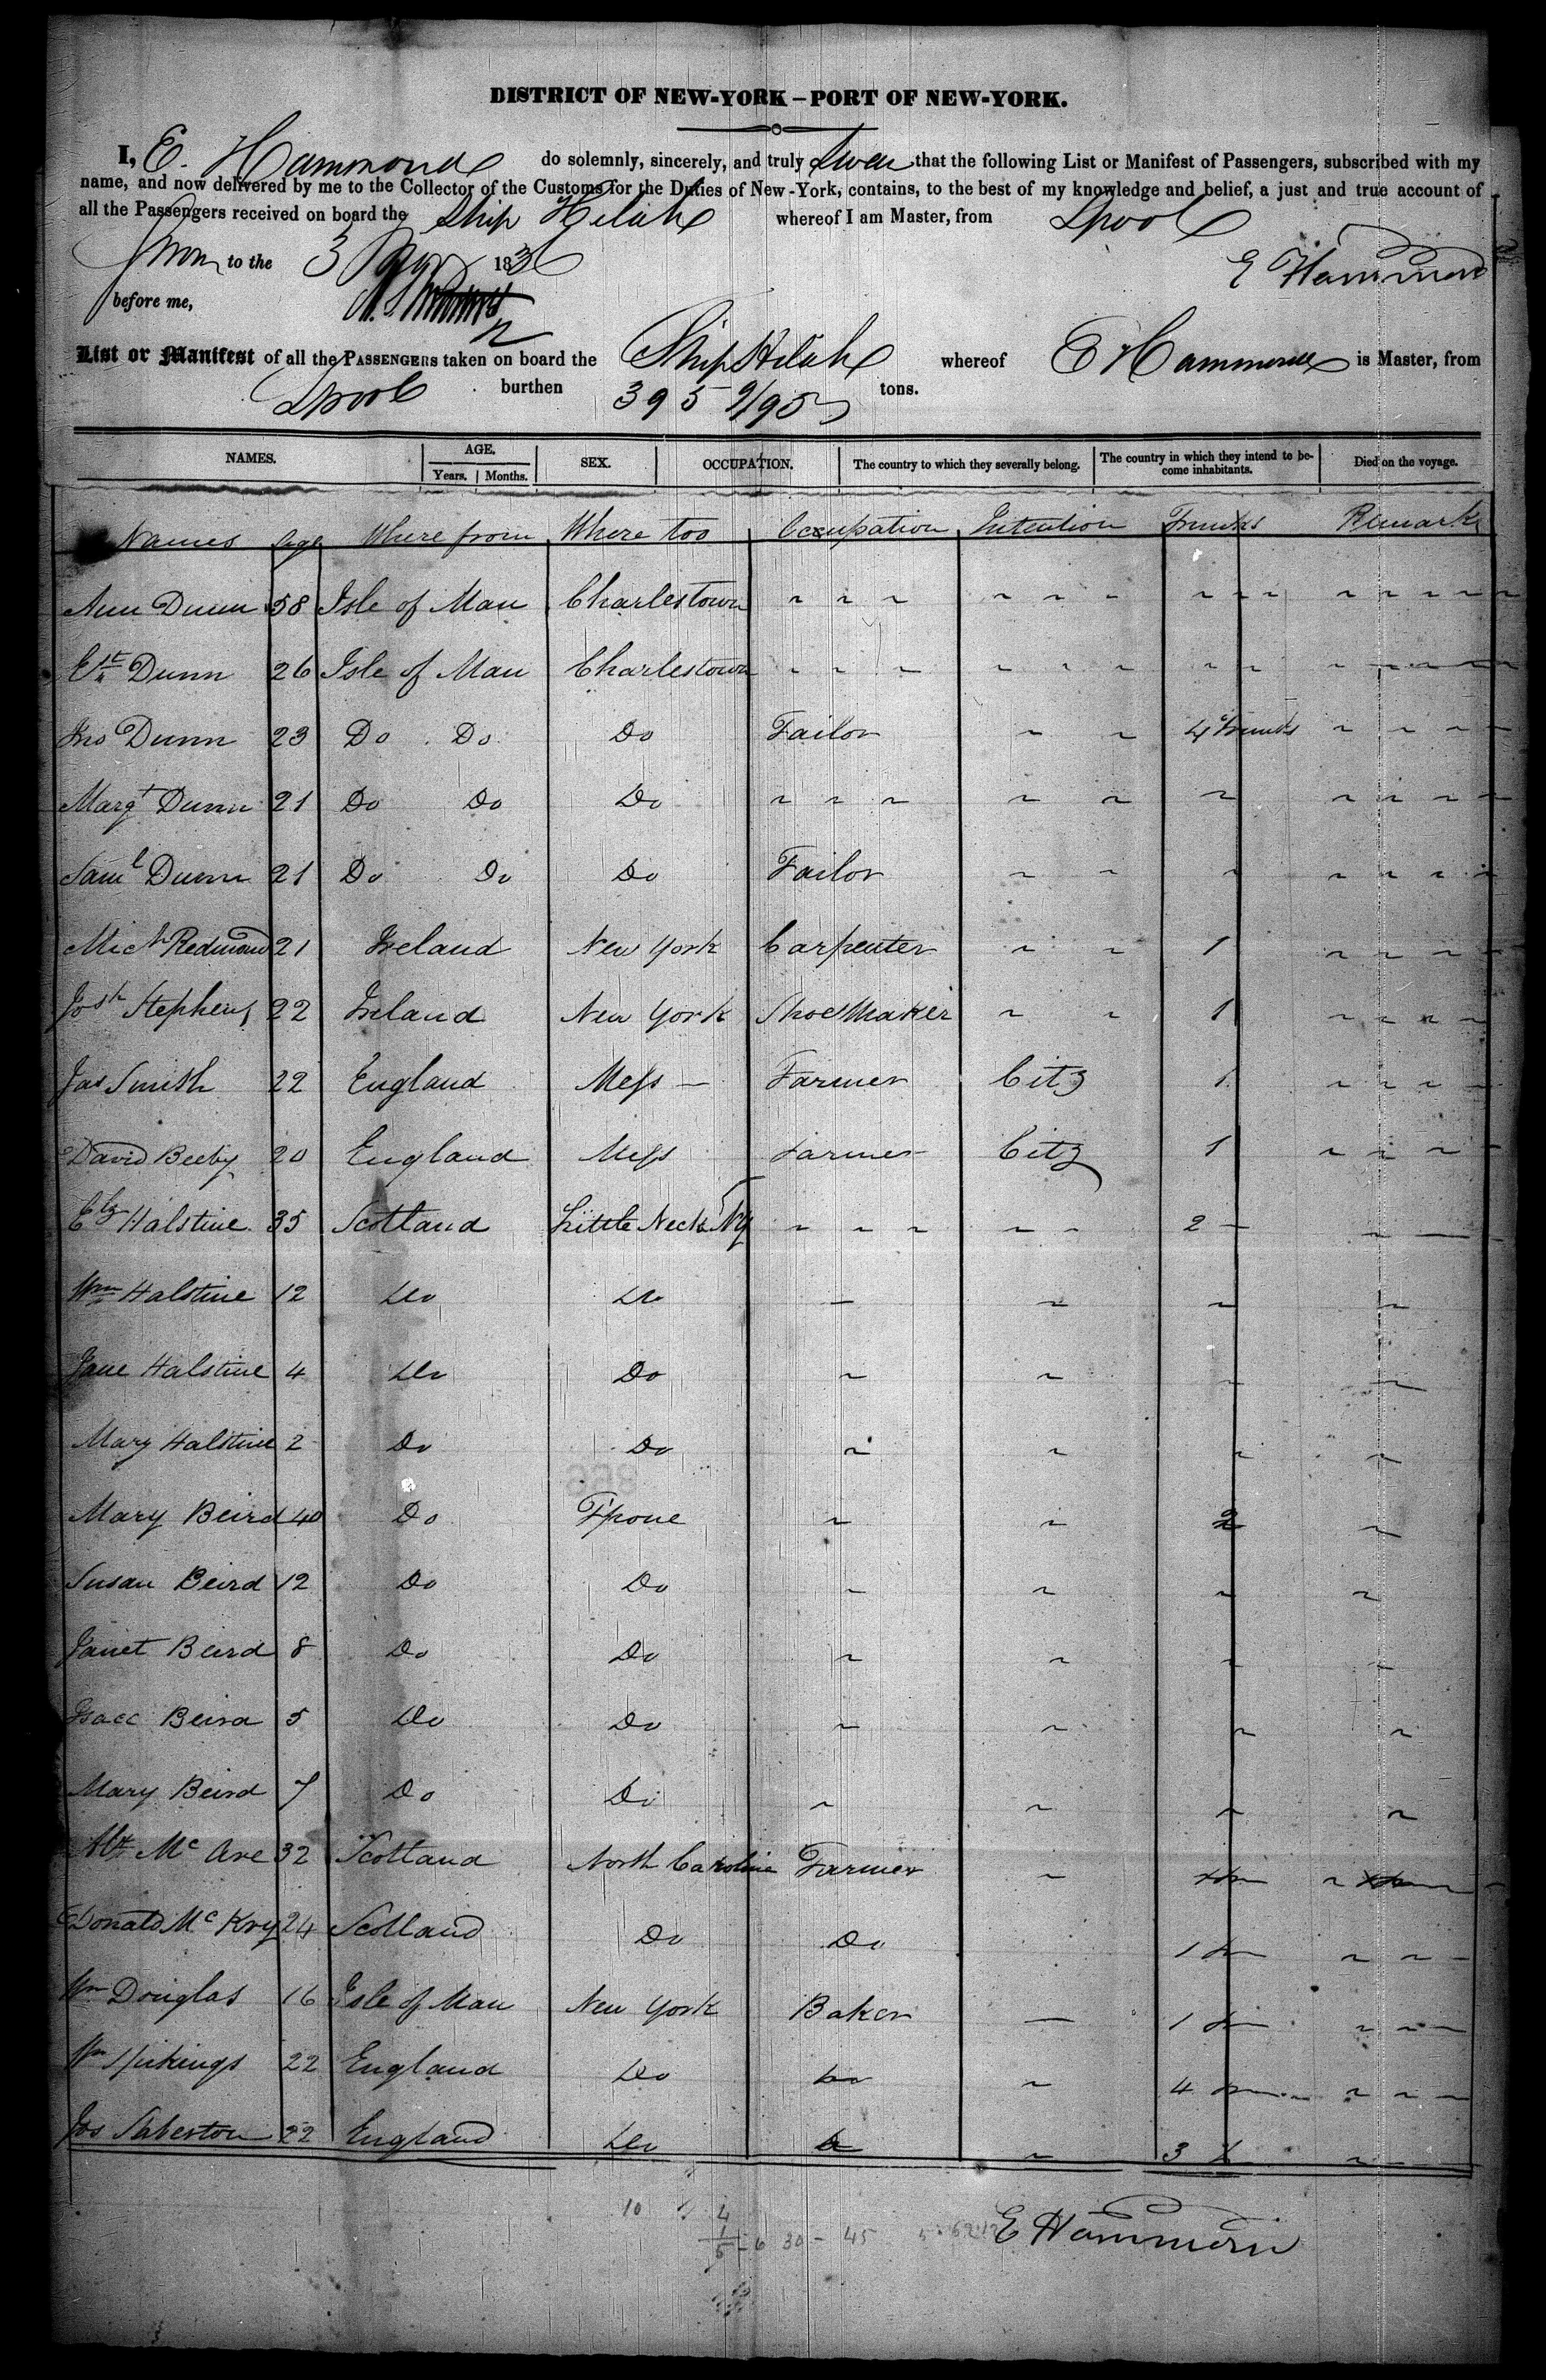 DISTRICT OF NEW-YORK – PORT OF NEW-YORK.
I, E. Hammond do solemnly, sincerely, and truly Swear that the following List or Manifest of Passengers, subscribed with my
name, and now delivered by me to the Collector of the Customs for the Duties of New-York, contains, to the best of my knowledge and belief, a just and true account of
all the Passengers received on board the Ship Helah whereof I am Master, from Lpool
Sworn to the 3 183 E Hammond
before me,
List or Manifest of all the PASSENGERS taken on board the Ship Helah whereof E Hammond is Master, from
Lpool burthen 395 9/95 tons.
NAMES. AGE. SEX. OCCUPATION. The country to which they severally belong. The country in which they intend to be-
come inhabitants. Died on the voyage.
Years. Months.
Names Age Where from Where too Occupation Intention Trunks Remark
Ann Dunn 58 Isle of Man Charlestown
Elt Dunn 26 Isle of Man Charlestown
Jno Dunn 23 Do Do Do Tailor 4 Trunks
Margt Dunn 21 Do Do Do
Saml Dunn 21 Do Do Do Tailor
Mich Redmond 21 Ireland New York Carpenter 1
Josh Stephens 22 Ireland New York Shoe Maker 1
Jas Smith 22 England Mess Farmer Citz 1
David Beeby 20 England Mess Farmer Citz 1
Elz Halstine 35 Scotland Little Neck NY 2
Wm Halstine 12 Do Do
Jane Halstine 4 Do Do
Mary Halstine 2 Do Do
Mary Beird 40 Do 2
Susan Beird 12 Do Do
Janet Beird 8 Do Do
Isaac Beird 5 Do Do
Mary Beird 7 Do Do
Mc Are 32 Scotland North Caroline Farmer
Donald Mc Kry 24 Scotland Do Do 1
Wm Douglas 16 Isle of Man New York Baker 1
Wm Spikings 22 England Do Do 4
Jos Saberton 22 England Do Do 3
10 4
1
5 6 30 - 45
E Hammond